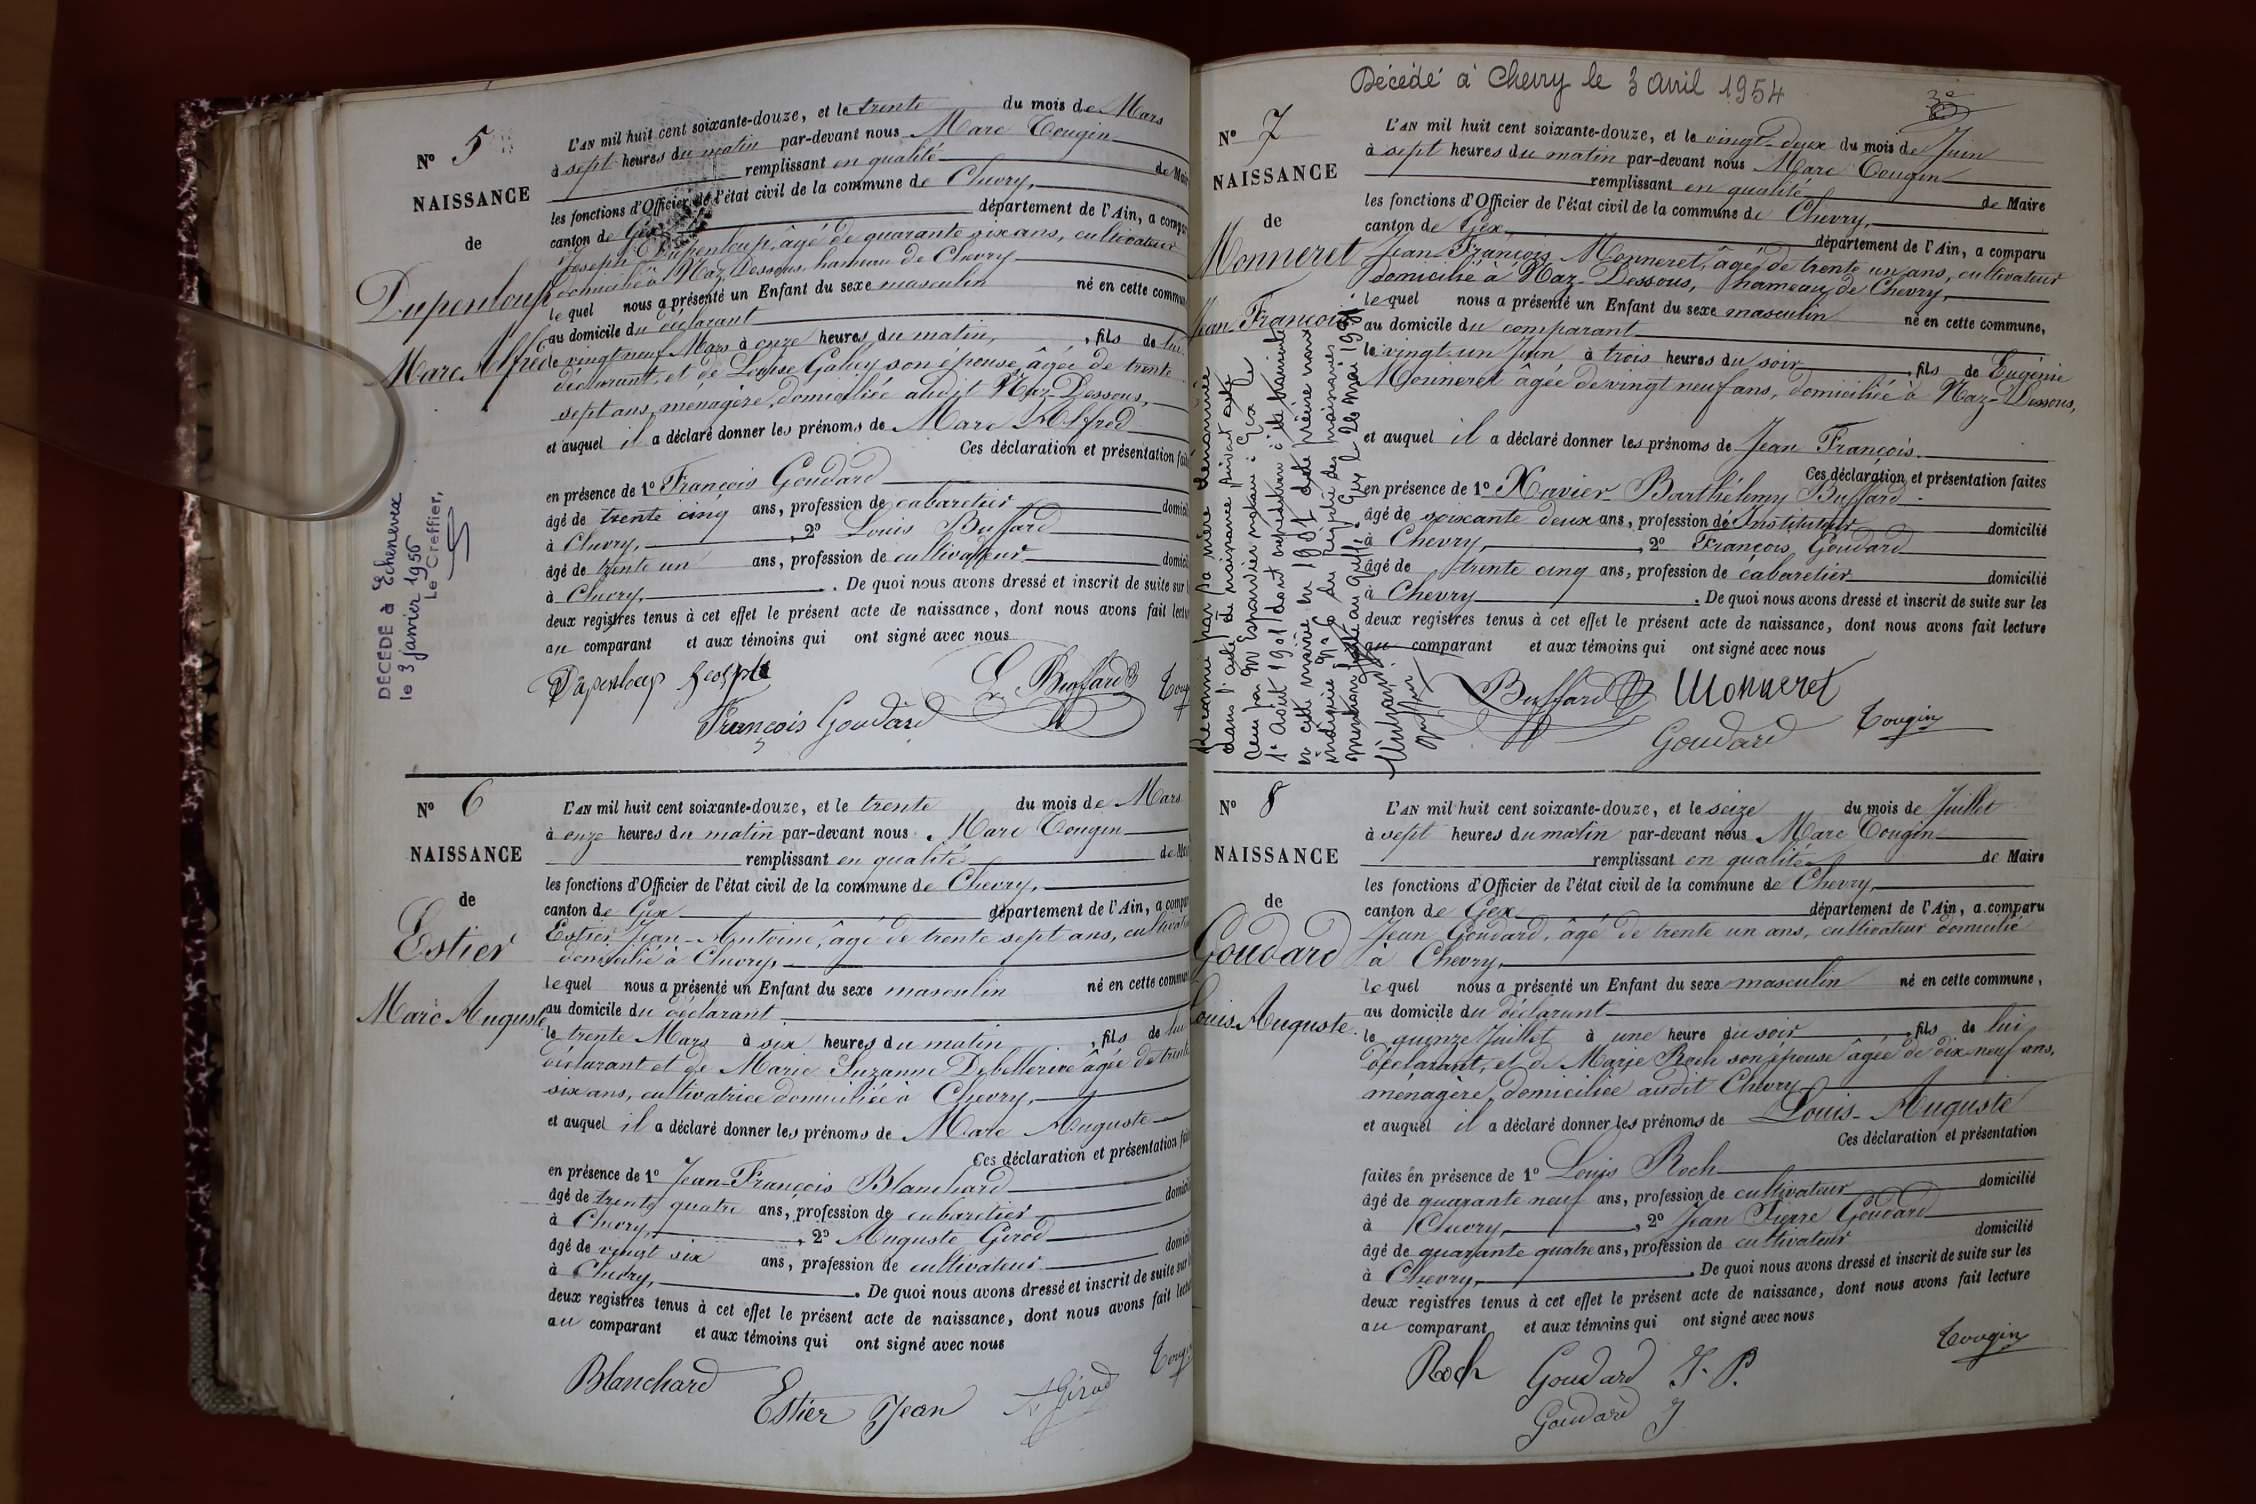 N° 5
NAISSANCE
de
Dupenloup
Marc Alfred
DÉCÉDÉ à Echenevex
le 3 janvier 1956
Le Greffier,
L'AN mil huit cent soixante-douze, et le trente du mois de Mars
à sept heures du matin par-devant nous Marc Tougin
remplissant en qualité de Maire
les fonctions d'Officier de l'état civil de la commune de Chevry,
canton de Gex département de l'Ain, a compar
Joseph Dupenloup, âgé de quarante six ans, cultivateur
domicilié à Naz-Dessous, hameau de Chevry
lequel nous a présenté un Enfant du sexe masculin né en cette commun
au domicile du déclarant
le vingt neuf Mars à onze heures du matin, fils de lui
déclarant, et de Louise Gabuy son épouse, âgée de trente
sept ans, ménagère, domiciliée audit Naz-Dessous,
et auquel il a déclaré donner les prénoms de Marc Alfred
Ces déclaration et présentation fait
en présence de 1° François Goudard
âgé de trente cinq ans, profession de cabaretier domicil
à Chevry, 2° Louis Buffard
âgé de trente un ans, profession de cultivateur domicil
à Chevry, . De quoi nous avons dressé et inscrit de suite sur l
deux registres tenus à cet effet le présent acte de naissance, dont nous avons fait lectu
au comparant et aux témoins qui ont signé avec nous
Dupenloup Joseph L. Buffard Toug
François Goudard
N° 6
NAISSANCE
de
Estier
Marc Auguste
L'AN mil huit cent soixante-douze, et le trente du mois de Mars
à onze heures du matin par-devant nous Marc Tougin
remplissant en qualité de Mai
les fonctions d'Officier de l'état civil de la commune de Chevry,
canton de Gex département de l'Ain, a compar
Estier Jean-Antoine, âgé de trente sept ans, cultivateur
domicilié à Chevry,
lequel nous a présenté un Enfant du sexe masculin né en cette commun
au domicile du déclarant
le trente Mars à six heures du matin, fils de lui
déclarant et de Marie Suzanne Debellerive âgée de trente
six ans, cultivatrice domiciliée à Chevry,
et auquel il a déclaré donner les prénoms de Marc Auguste
Ces déclaration et présentation fait
en présence de 1° Jean-François Blanchard
âgé de trente quatre ans, profession de cabaretier domicil
à Chevry, 2° Auguste Girod
âgé de vingt six ans, profession de cultivateur domicil
à Chevry, . De quoi nous avons dressé et inscrit de suite sur l
deux registres tenus à cet effet le présent acte de naissance, dont nous avons fait lectu
au comparant et aux témoins qui ont signé avec nous
Blanchard Estier Jean A Girod Toug
Décédé à Chevry le 3 avril 1954
N° 7
NAISSANCE
de
Monneret
Jean-François
Reconnu par sa mère dénommée
dans l'acte de naissance suivant acte
1er Août 1901 dont expédition a été transcrite
en cette mairie en 1901
L'AN mil huit cent soixante-douze, et le vingt-deux du mois de Juin
à sept heures du matin par-devant nous Marc Tougin
remplissant en qualité de Maire
les fonctions d'Officier de l'état civil de la commune de Chevry,
canton de Gex, département de l'Ain, a comparu
Jean-François Monneret, âgé de trente un ans, cultivateur
domicilié à Naz-Dessous, hameau de Chevry,
lequel nous a présenté un Enfant du sexe masculin né en cette commune,
au domicile du comparant
le vingt-un Juin à trois heures du soir, fils de Eugénie
Monneret âgée de vingt neuf ans, domiciliée à Naz-Dessous,
et auquel il a déclaré donner les prénoms de Jean François.
Ces déclaration et présentation faites
en présence de 1° Xavier Barthélemy Buffard
âgé de soixante deux ans, profession de Instituteur domicilié
à Chevry, 2° François Goudard
âgé de trente cinq ans, profession de cabaretier domicilié
à Chevry . De quoi nous avons dressé et inscrit de suite sur les
deux registres tenus à cet effet le présent acte de naissance, dont nous avons fait lecture
au comparant et aux témoins qui ont signé avec nous
Buffard Monneret
Goudard Tougin
N° 8
NAISSANCE
de
Goudard
Louis Auguste
L'AN mil huit cent soixante-douze, et le seize du mois de Juillet
à sept heures du matin par-devant nous Marc Tougin
remplissant en qualité de Maire
les fonctions d'Officier de l'état civil de la commune de Chevry,
canton de Gex département de l'Ain, a comparu
Jean Goudard, âgé de trente un ans, cultivateur domicilié
à Chevry,
lequel nous a présenté un Enfant du sexe masculin né en cette commune,
au domicile du déclarant
le quinze Juillet à une heure du soir, fils de lui
déclarant, et de Marie Roch son épouse âgée de dix-neuf ans,
ménagère, domiciliée audit Chevry
et auquel il a déclaré donner les prénoms de Louis-Auguste
Ces déclaration et présentation
faites en présence de 1° Louis Roch
âgé de quarante neuf ans, profession de cultivateur domicilié
à Chevry, 2° Jean Pierre Goudard
âgé de quarante quatre ans, profession de cultivateur domicilié
à Chevry, . De quoi nous avons dressé et inscrit de suite sur les
deux registres tenus à cet effet le présent acte de naissance, dont nous avons fait lecture
au comparant et aux témoins qui ont signé avec nous
Roch Goudard J. P. Tougin
Goudard J